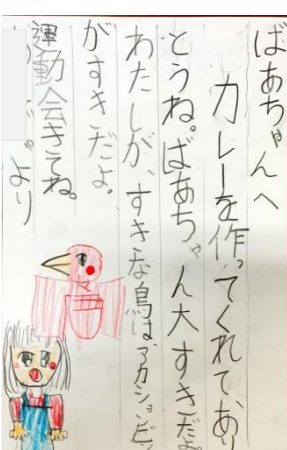 ばあちゃんへ
カレーを作ってくれてあり
とうね。ばあちゃん大すきだよ
わたしが、すきな鳥は、アカショウビン
がすきだよ。
運動会きてね。
より